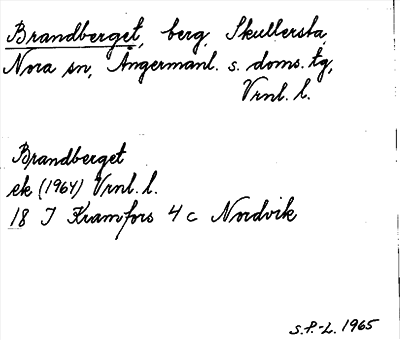 Brandberget, berg, Skullersta,
Nora sn, Ångermanl. s. doms. tg,
Vrnl. l.
Brandberget
ek (1964) Vrnl. l.
18 J Kramfors 4 c Nordvik
S.P.-L. 1965